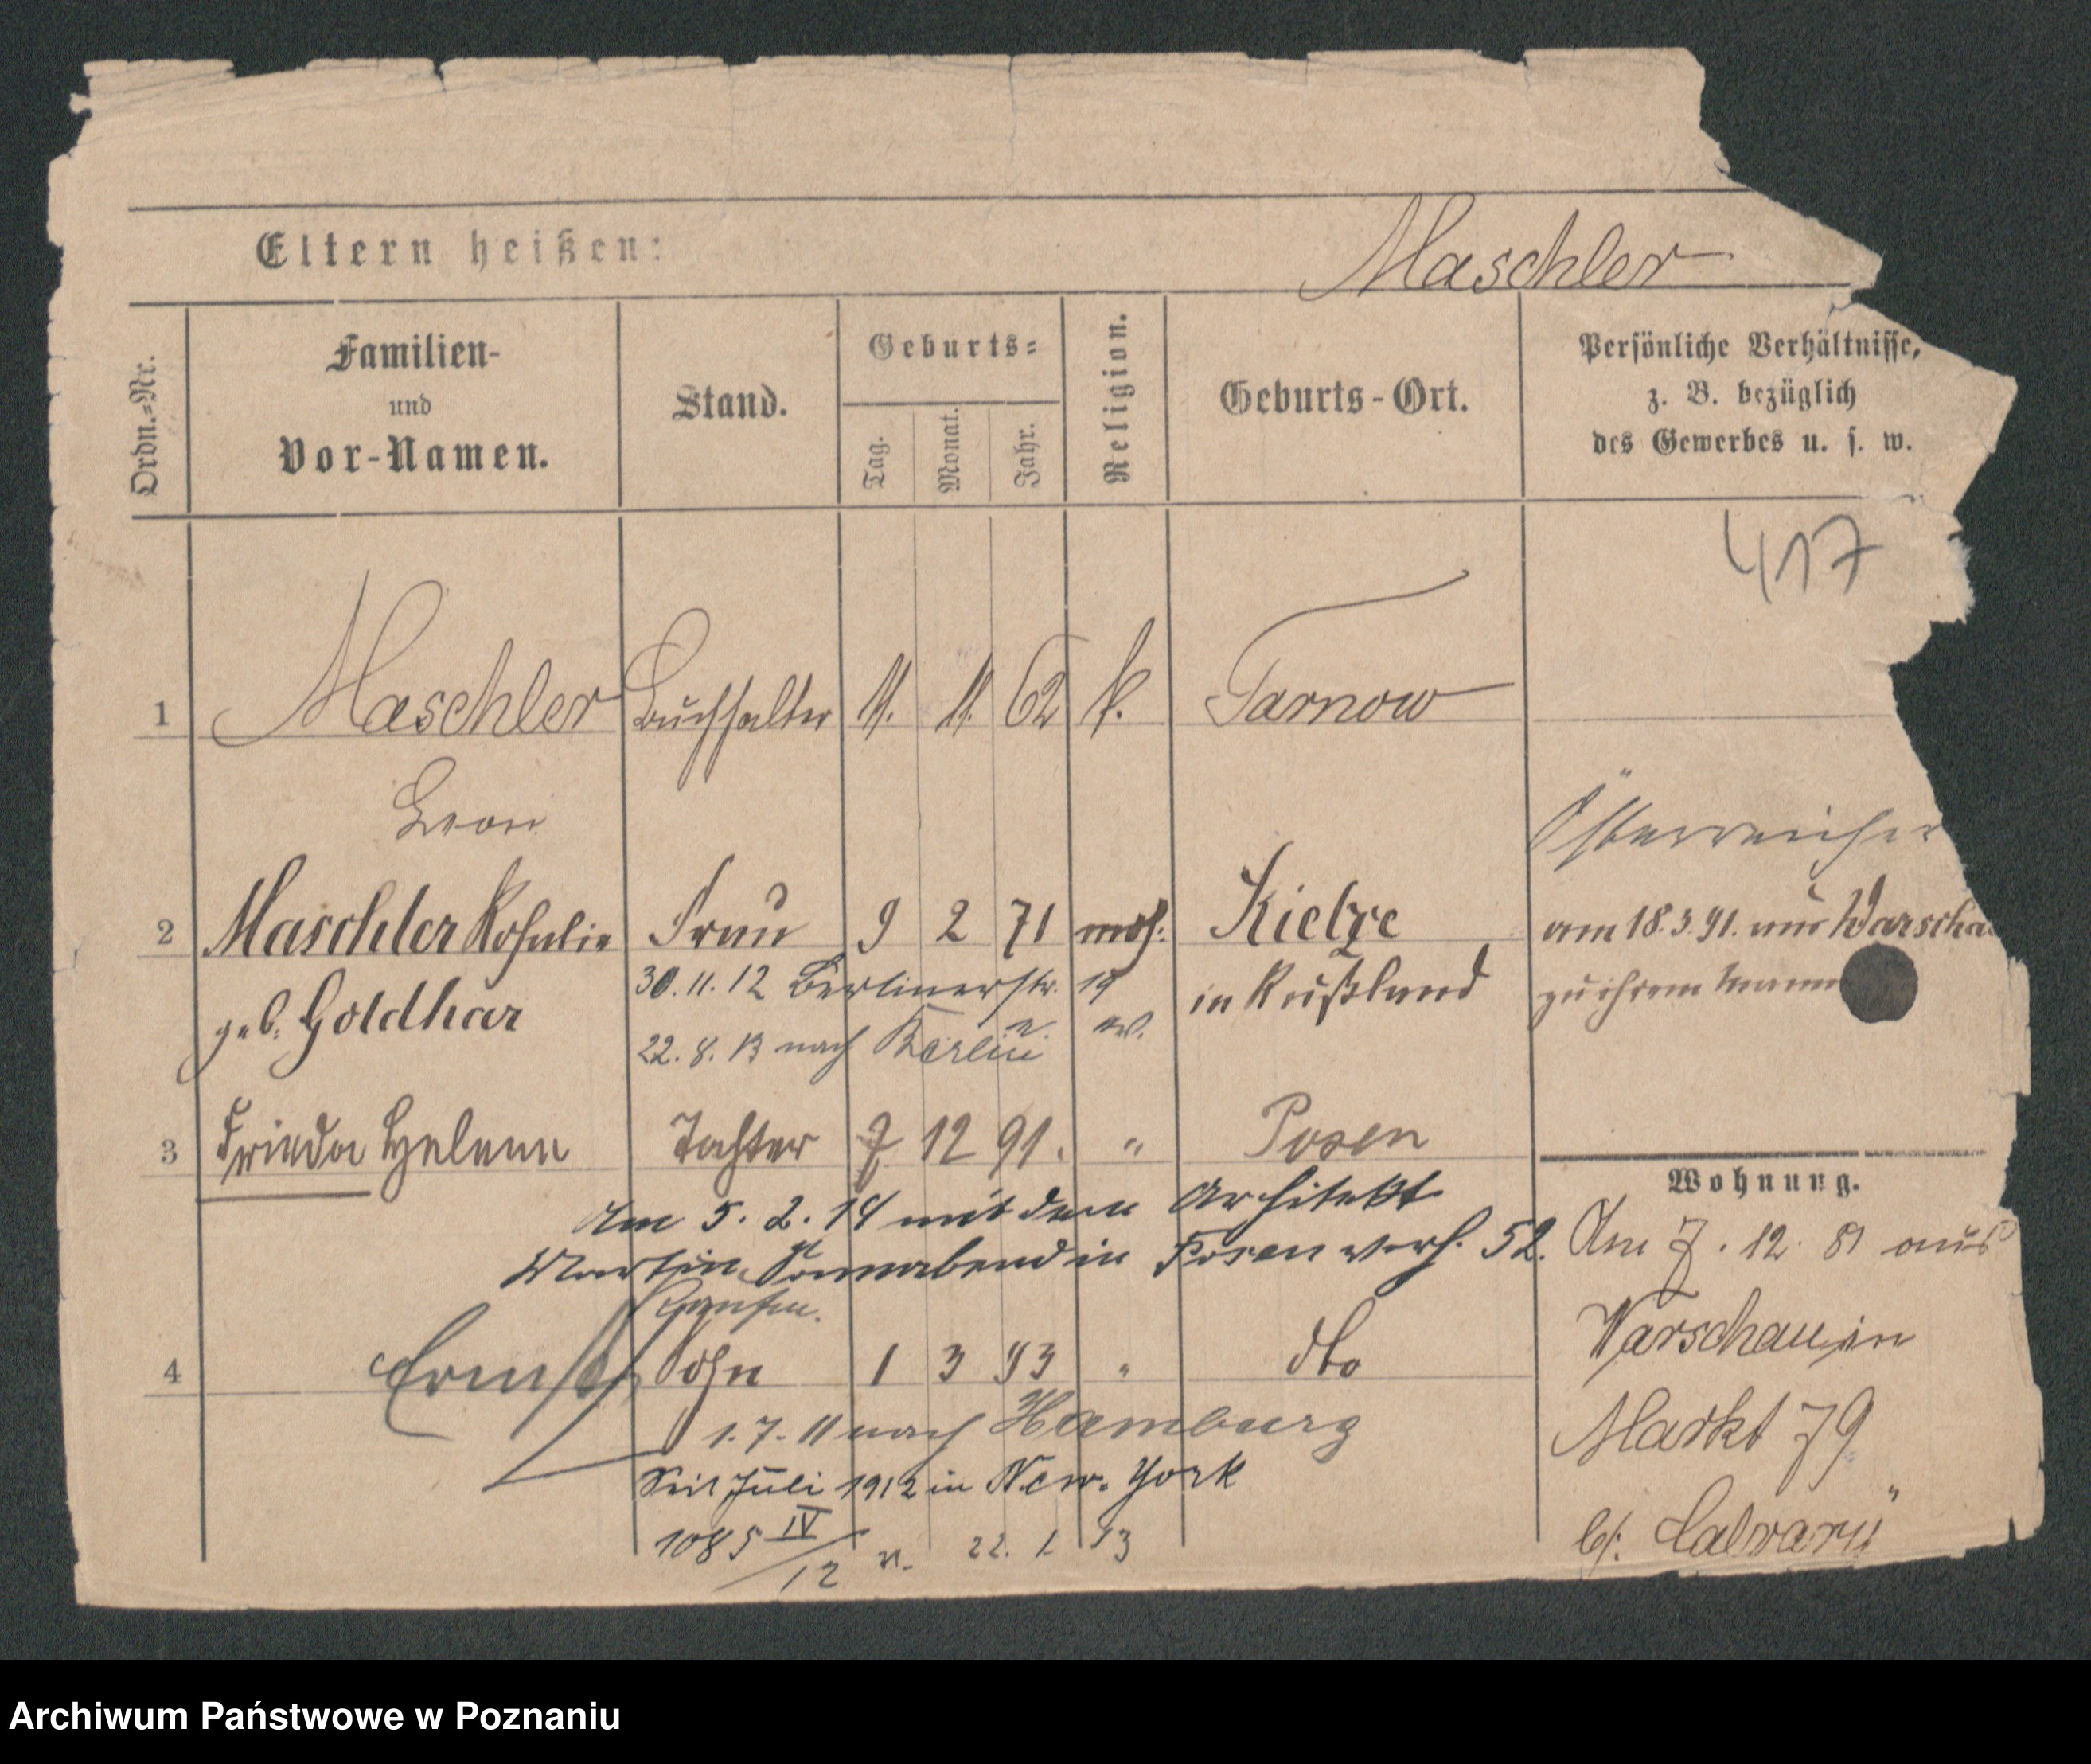 Eltern heißen:
Maschler
Ordn.-Nr.
Familien-
und
Vor-Namen.
Stand.
Geburts-
Tag.
Monat.
Jahr.
Religion.
Geburts-Ort.
Persönliche Verhältnisse,
z. B. bezüglich
des Gewerbes u. s. w.
417
1 Maschler Buchhalter 11. 11. 62 k. Tarnow
Leon
Österreicher
2 Maschler Rosalie Frau 9 2 71 mos. Kielze am 18.3.91. aus Warscha
geb. Goldhar in Rußland zu ihrem Mann
30. 11. 12 Berlinerstr. 19
22. 8. 13 nach Berlin
3 Frieda Helene Tochter 7 12 91. " Posen
Am 5. 2. 14 mit dem Architekt
Martin Sonnabend in Posen verh. 52.
Wohnung.
Am 7. 12. 81 aus
Warschau in
Markt 79
b/. Calvary
4 Ernst Sohn 1 3 93 " dto
1. 7. 11 nach Hamburg
Seit Juli 1912 in New-York
1085 IV/12 22. 1. 13
Archiwum Państwowe w Poznaniu